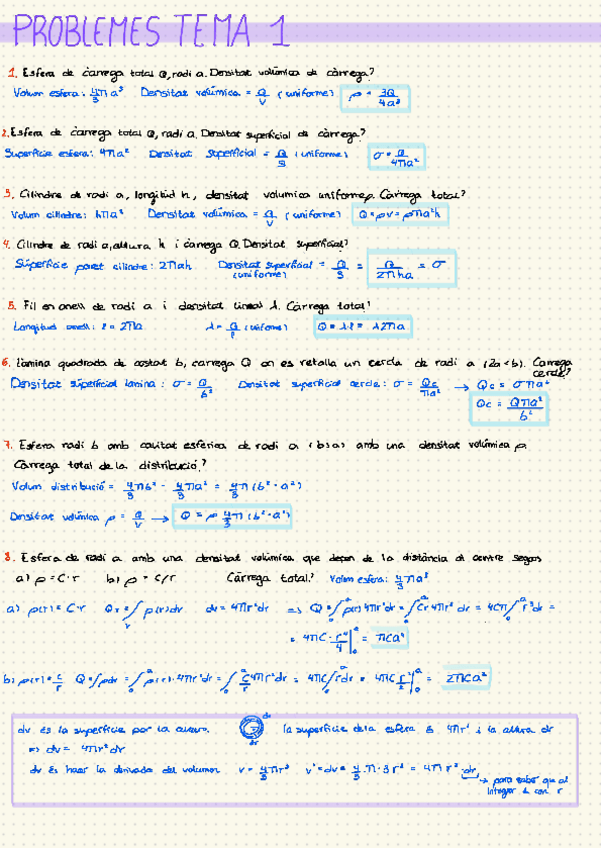 PROBLEMES TEMA 1
1. Esfera de càrrega total Q, radi a. Densitat volúmica de càrrega?
Volum esfera: 4/3 πa³ Densitat volúmica = Q/V (uniforme) ρ = 3Q/4a³
2. Esfera de càrrega total Q, radi a. Densitat superficial de càrrega?
Superfície esfera: 4πa² Densitat superficial = Q/S (uniforme) σ = Q/4πa²
3. Cilindre de radi a, longitud h, densitat volumica uniforme ρ. Càrrega total?
Volum cilindre: hπa² Densitat volúmica = Q/V (uniforme) Q = ρV = ρπa²h
4. Cilindre de radi a, altura h i càrrega Q. Densitat superficial?
Superfície paret cilindre: 2πah Densitat superficial = Q/S = Q/2πha = σ
(uniforme)
5. Fil en anell de radi a i densitat lineal λ. Càrrega total?
Longitud anell: ℓ = 2πa λ = Q/ℓ (uniforme) Q = λ·ℓ = λ2πa
6. Làmina quadrada de costat b, càrrega Q on es retalla un cercle de radi a (2a<b). Càrrega
cercle?
Densitat superficial làmina: σ = Q/b² Densitat superficial cercle: σ = Qc/πa² → Qc = σπa²
Qc = Qπa²/b²
7. Esfera radi b amb cavitat esfèrica de radi a (b>a) amb una densitat volúmica ρ
Càrrega total de la distribució?
Volum distribució = 4/3 πb³ - 4/3 πa³ = 4/3 π (b³ - a³)
Densitat volúmica ρ = Q/V → Q = ρ 4/3 π (b³ - a³)
8. Esfera de radi a amb una densitat volúmica que depen de la distància al centre segons
a) ρ = C·r b) ρ = C/r Càrrega total? Volum esfera: 4/3 πa³
a) ρ(r) = C·r Qr = ∫ρ(r)dv dv = 4πr²dr => Q = ∫ρ(r) 4πr²dr = ∫Cr 4πr² dr = 4Cπ∫r³dr =
= 4πC · r⁴/4 |₀ᵃ = πCa⁴
b) ρ(r) = C/r Q = ∫ρdv = ∫ρ(r)·4πr²dr = ∫C/r 4πr²dr = 4πC∫rdr = 4πC r²/2 |₀ᵃ = 2πCa²
dv és la superfície por la altura. dr la superfície de la esfera és 4πr² i la altura dr
=> dv = 4πr²dr
dv és hacer la derivada del volumen v = 4/3 πr³ v' = dv = 4/3 · π · 3r² = 4πr² · dr
→ para saber que al
integrar és con r